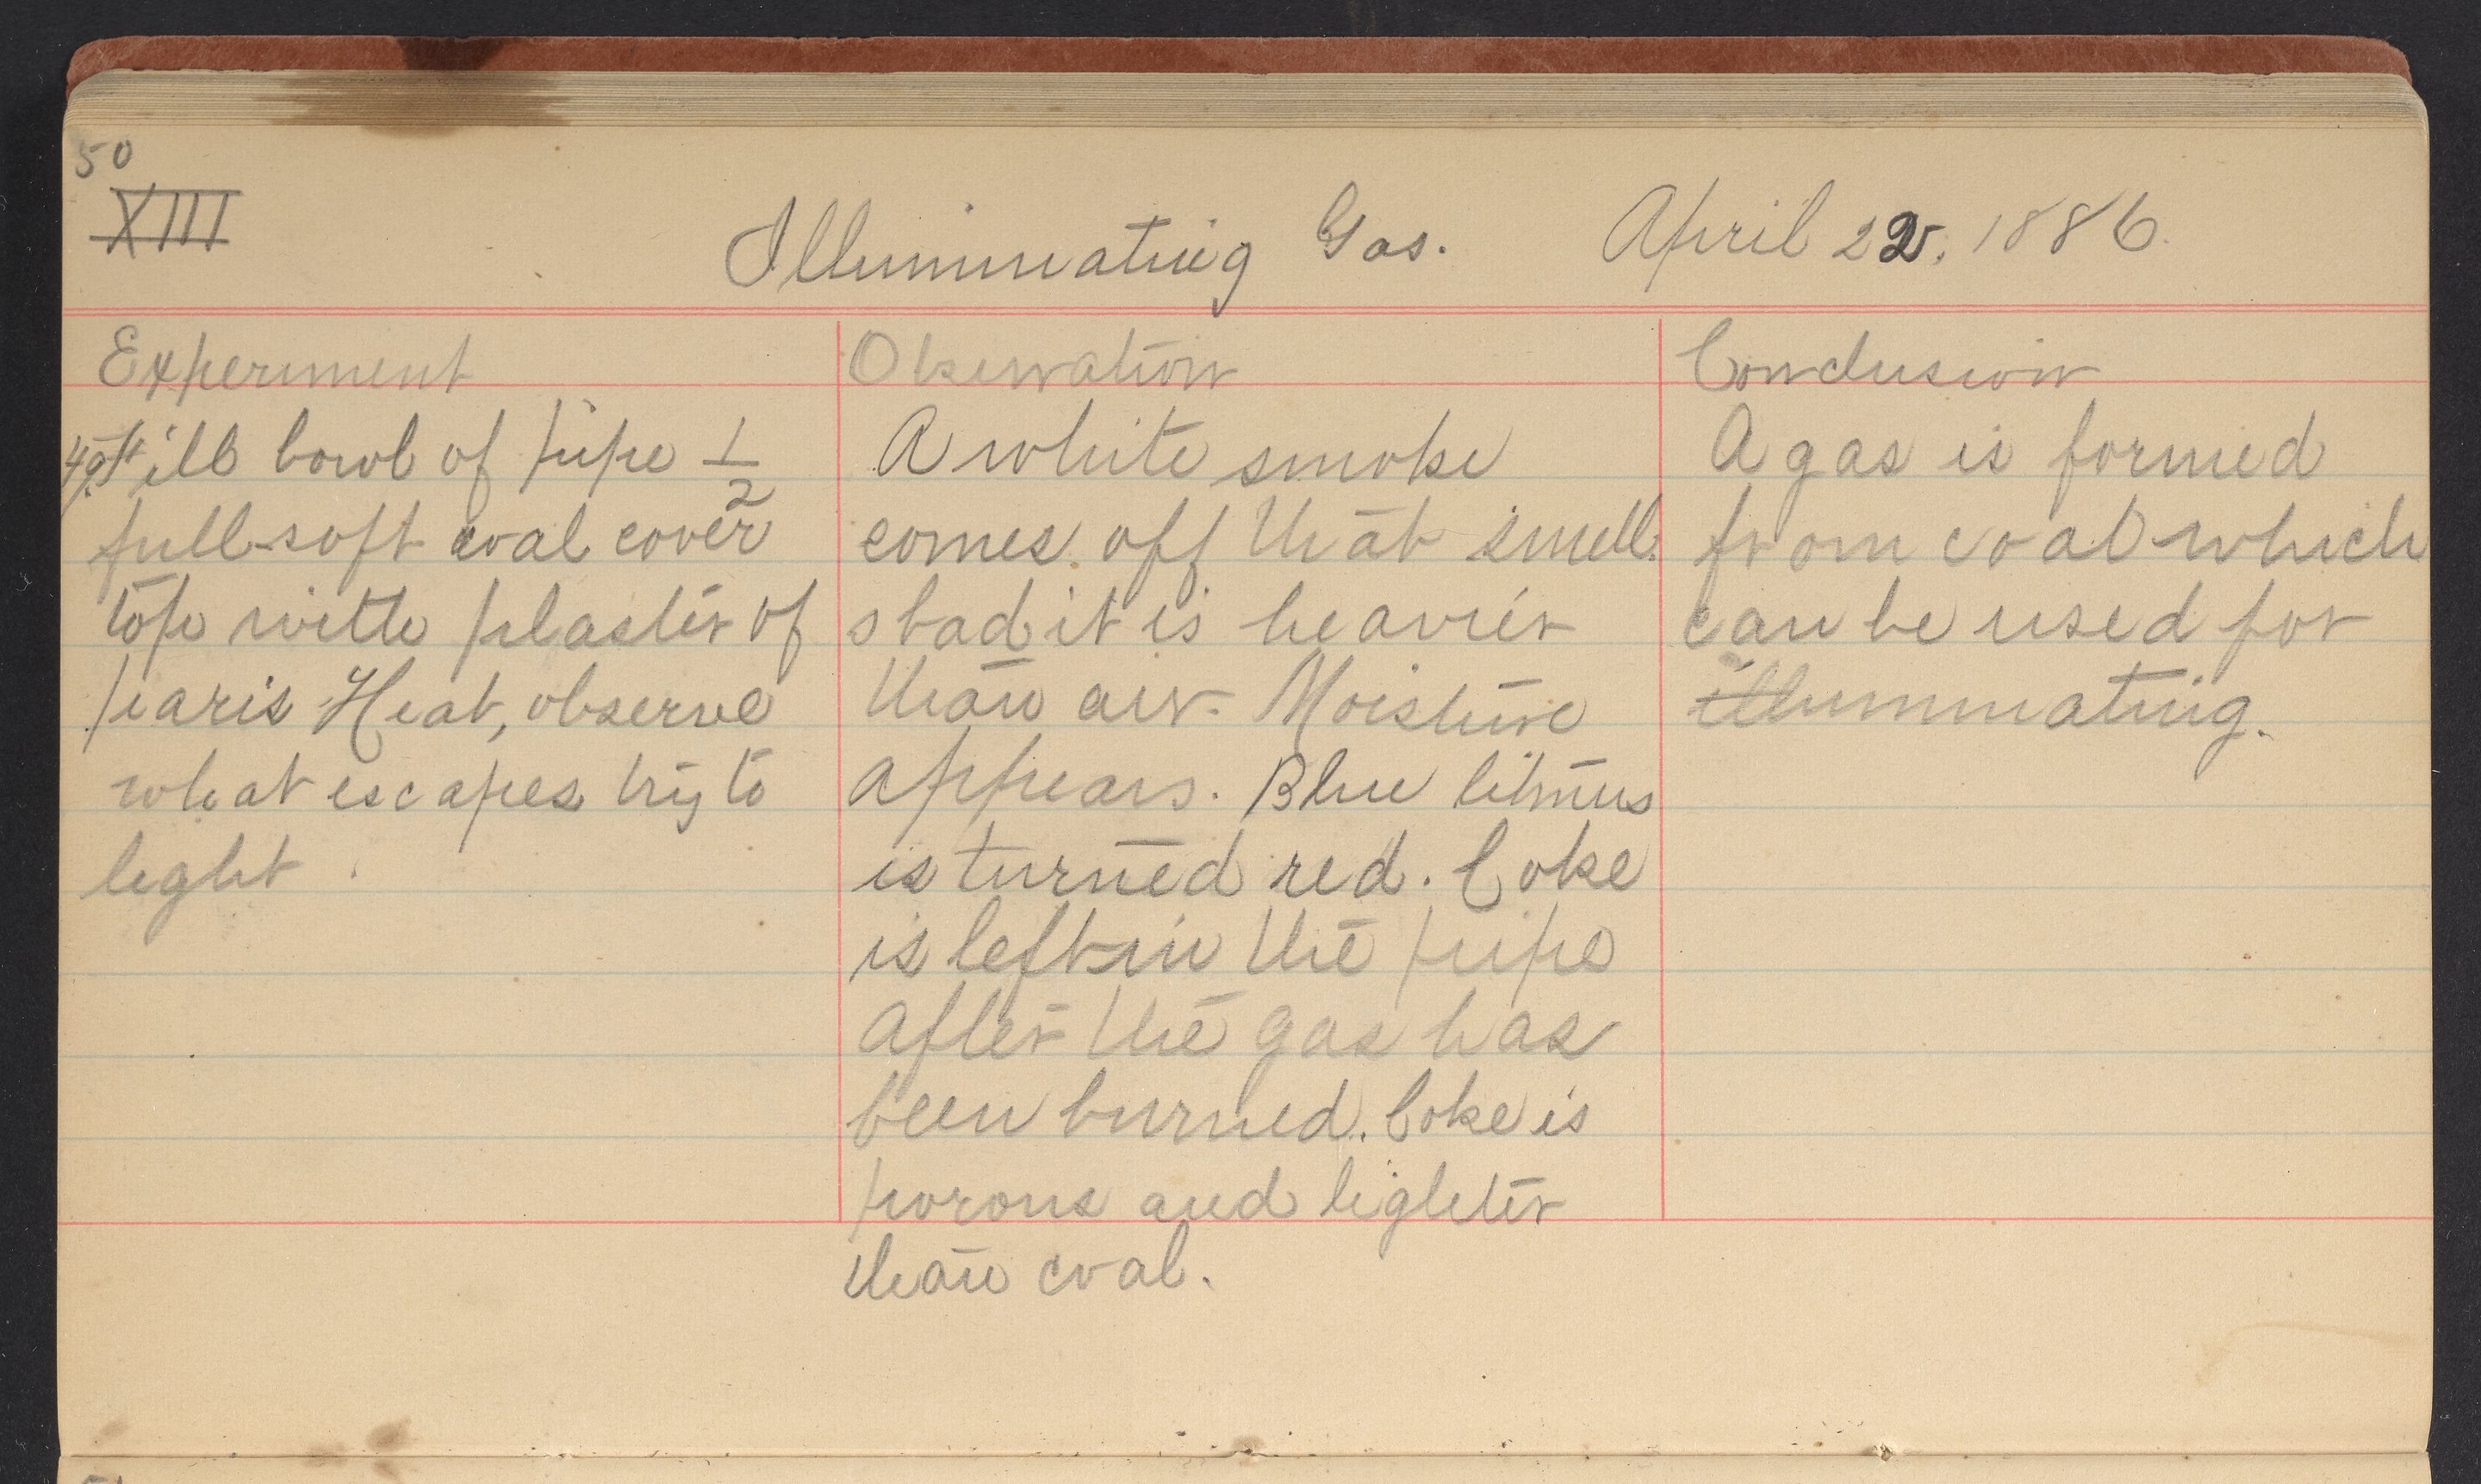 50
XIII
Illuminating Gas. April 22, 1886.
Experiment
Fill bowl of pipe 1/2
full soft coal cover
top with plaster of
paris Heat, observe
what escapes try to
light.
Observation
A white smoke
comes off that smell
s bad it is heavier
than air. Moisture
appears. Blue litmus
is turned red. Coke
is left in the pipe
after the gas has
been burned. Coke is
porous and lighter
than coal.
Conclusion
A gas is formed
from coal which
can be used for
illuminating.